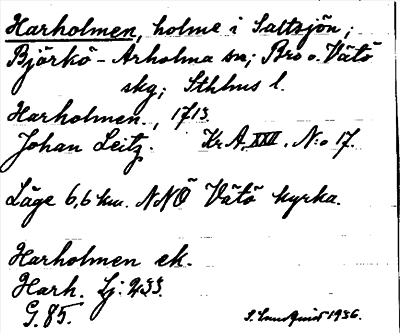 Harholmen, holme i Saltsjön;
Björkö-Arholma sn; Bro o. Vätö
skg; Sthlms l.
Harholmen., 1713.
Johan Leitz. Kr A, XXII, N:o 17.
Läge 6,6 km. NNÖ Vätö kyrka.
Harholmen ek.
Harh. Lj: 233.
G. 85. S. Lundquist 1936.